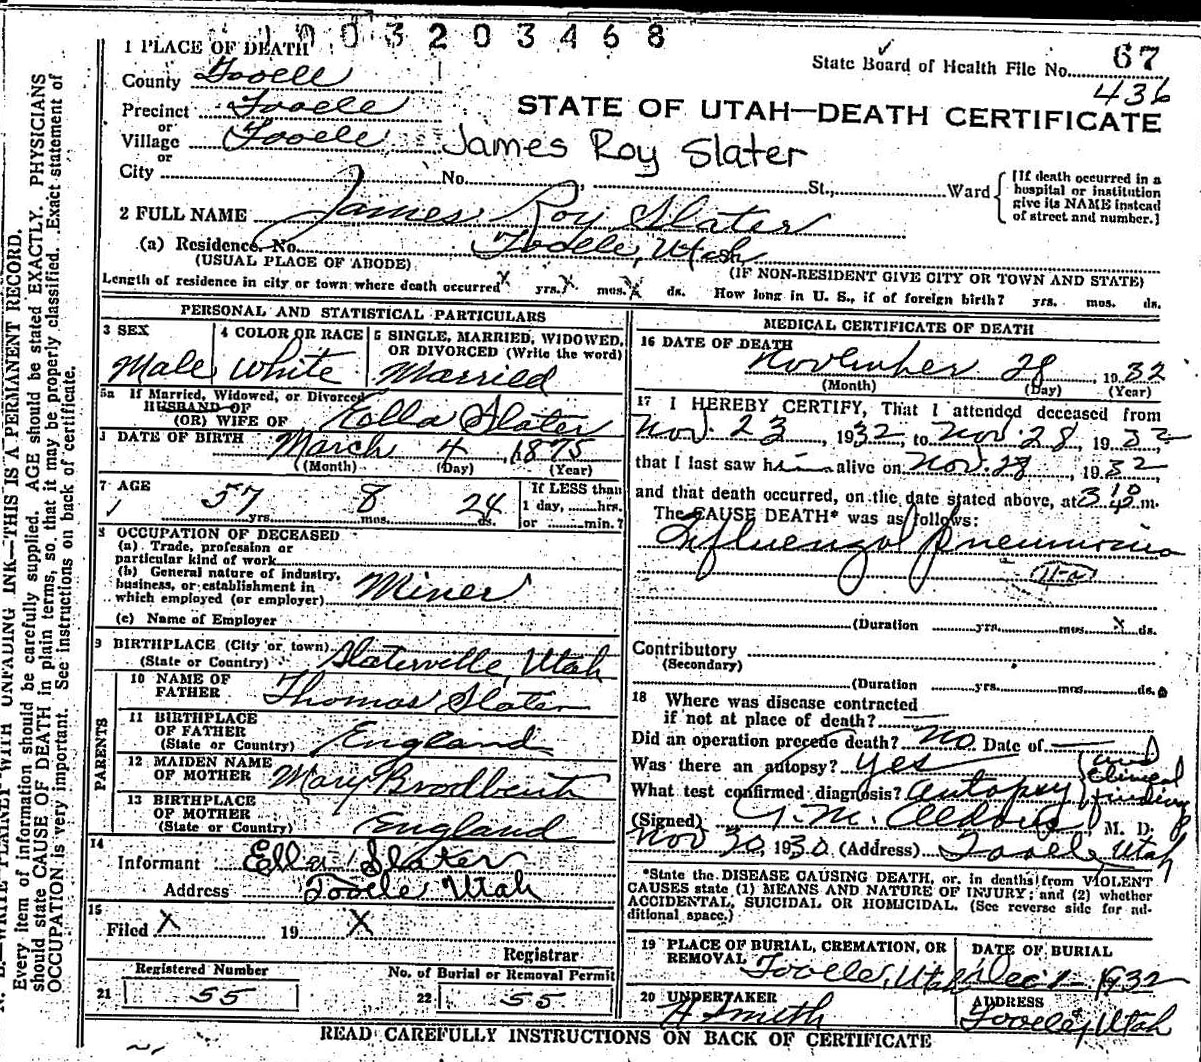 1003203468
1 PLACE OF DEATH
State Board of Health File No. 67
436
County Tooele
Precinct Tooele
or
Village Tooele
or
STATE OF UTAH—DEATH CERTIFICATE
James Roy Slater
City No. St., Ward
[If death occurred in a
hospital or institution
give its NAME instead
of street and number.]
2 FULL NAME James Roy Slater
(a) Residence. No. Tooele, Utah
(USUAL PLACE OF ABODE) (IF NON-RESIDENT GIVE CITY OR TOWN AND STATE)
Length of residence in city or town where death occurred X yrs. X mos. X ds. How long in U. S., if of foreign birth? yrs. mos. ds.
PERSONAL AND STATISTICAL PARTICULARS
3 SEX
Male
4 COLOR OR RACE
White
5 SINGLE, MARRIED, WIDOWED,
OR DIVORCED (Write the word)
Married
5a If Married, Widowed, or Divorced
HUSBAND OF
(OR) WIFE OF Ella Slater
DATE OF BIRTH March 4, 1875
(Month) (Day) (Year)
7 AGE
57 yrs. 8 mos. 24 ds.
If LESS than
1 day, hrs.
or min.?
8 OCCUPATION OF DECEASED
(a) Trade, profession or
particular kind of work
(b) General nature of industry,
business, or establishment in
which employed (or employer) Miner
(c) Name of Employer
9 BIRTHPLACE (City or town)
(State or Country) Slaterville, Utah
PARENTS
10 NAME OF
FATHER Thomas Slater
11 BIRTHPLACE
OF FATHER
(State or Country) England
12 MAIDEN NAME
OF MOTHER Mary Brodbent
13 BIRTHPLACE
OF MOTHER
(State or Country) England
14
Informant Ella Slater
Address Tooele Utah
15
Filed X 19 X
Registrar
Registered Number
21 55
No. of Burial or Removal Permit
22 55
MEDICAL CERTIFICATE OF DEATH
16 DATE OF DEATH
November 28, 1932
(Month) (Day) (Year)
17 I HEREBY CERTIFY, That I attended deceased from
Nov. 23, 1932, to Nov. 28, 1932
that I last saw him alive on Nov. 28, 1932
and that death occurred, on the date stated above, at 3 m.
The CAUSE DEATH* was as follows:
Influenzal pneumonia
11-a
(Duration yrs. mos. X ds.
Contributory
(Secondary)
(Duration yrs. mos. ds.
18 Where was disease contracted
if not at place of death? —
Did an operation precede death? No. Date of —
Was there an autopsy? yes
What test confirmed diagnosis? autopsy
and
clinical
findings
(Signed) M. D.
Nov 30, 1930. (Address) Tooele, Utah
*State the DISEASE CAUSING DEATH, or, in deaths from VIOLENT
CAUSES state (1) MEANS AND NATURE OF INJURY; and (2) whether
ACCIDENTAL, SUICIDAL OR HOMICIDAL. (See reverse side for ad-
ditional space.)
19 PLACE OF BURIAL, CREMATION, OR
REMOVAL Tooele, Utah
DATE OF BURIAL
Dec 1 - 1932
20 UNDERTAKER
A Smith
ADDRESS
Tooele, Utah
READ CAREFULLY INSTRUCTIONS ON BACK OF CERTIFICATE
WRITE PLAINLY WITH UNFADING INK—THIS IS A PERMANENT RECORD.
Every item of information should be carefully supplied. AGE should be stated EXACTLY. PHYSICIANS
should state CAUSE OF DEATH in plain terms, so that it may be properly classified. Exact statement of
OCCUPATION is very important. See instructions on back of certificate.